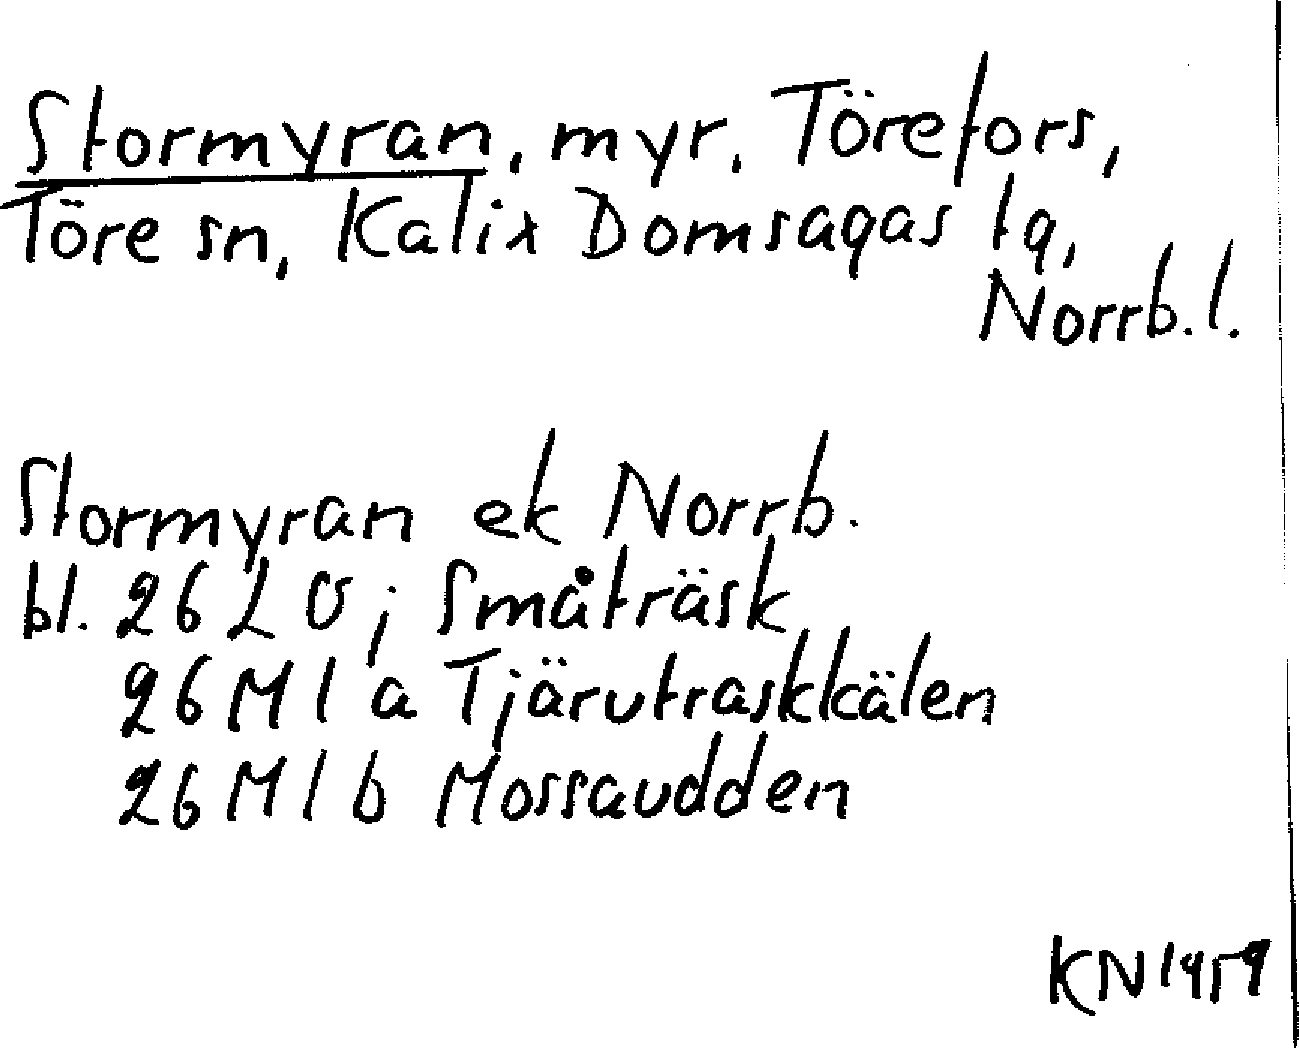 Stormyran, myr, Törefors,
Töre sn, Kalix Domsagas tg,
Norrb. l.
Stormyran ek Norrb.
bl. 26 L 0 j Småträsk
26 M 1 a Tjärutraskkälen
26 M 1 b Mossaudden
KN 1959